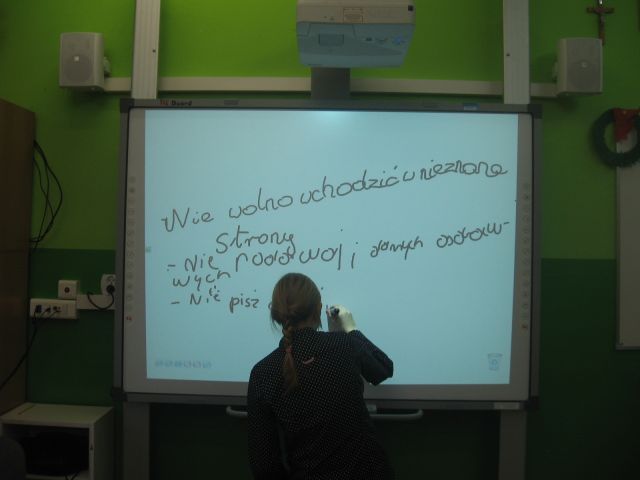 Nie wolno wchodzić w nieznane
strony
- Nie podawaj danych osobow-
wych
- Nie pisz